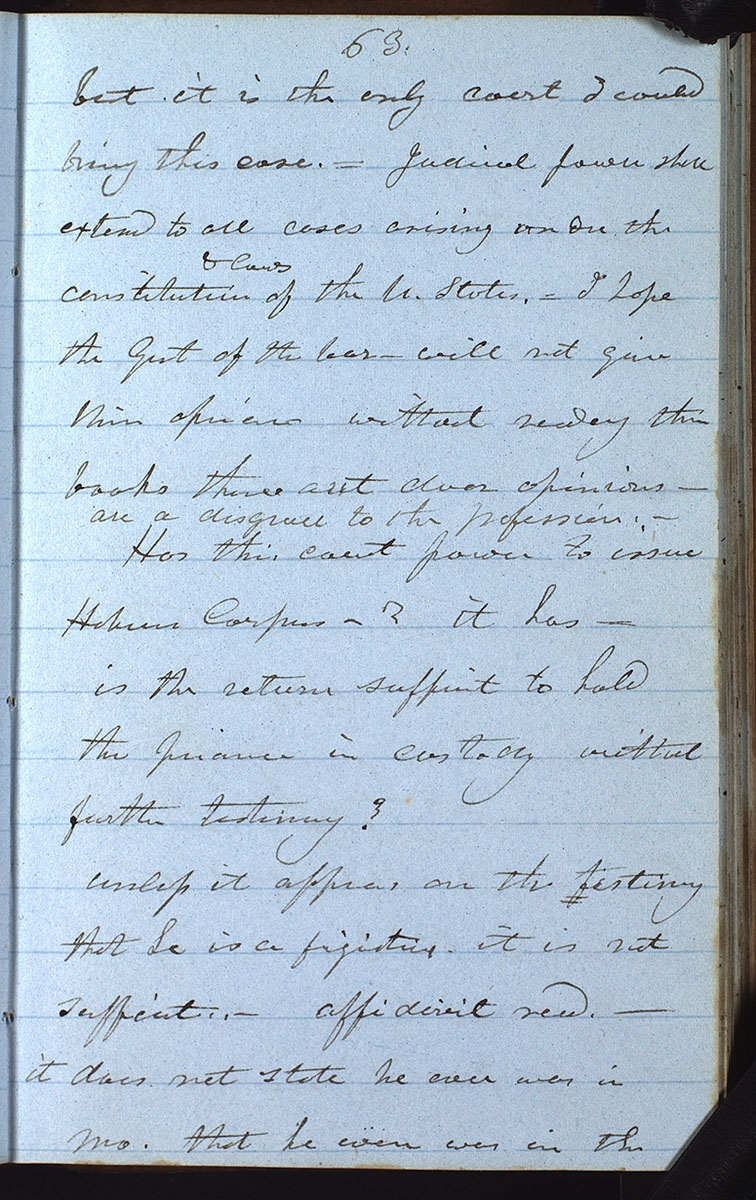 63.
but it is the only court I could
bring this case. = Judicial power shall
extend to all cases arising under the
& laws
constitution of the U. States. = I hope
the Gent of the bar— will not give
opinions without reading the
books these out door opinions —
are a disgrace to the profession. —
Has this court power to issue
Habeus Corpus — ? it has —
is the return suffient to hold
the prisoner in custody without
further testimony?
unless it appears on the testimony
that he is a fugitive. it is not
suffient.. — affidavit read. —
it does not state he ever was in
Mo. that he ever was in the